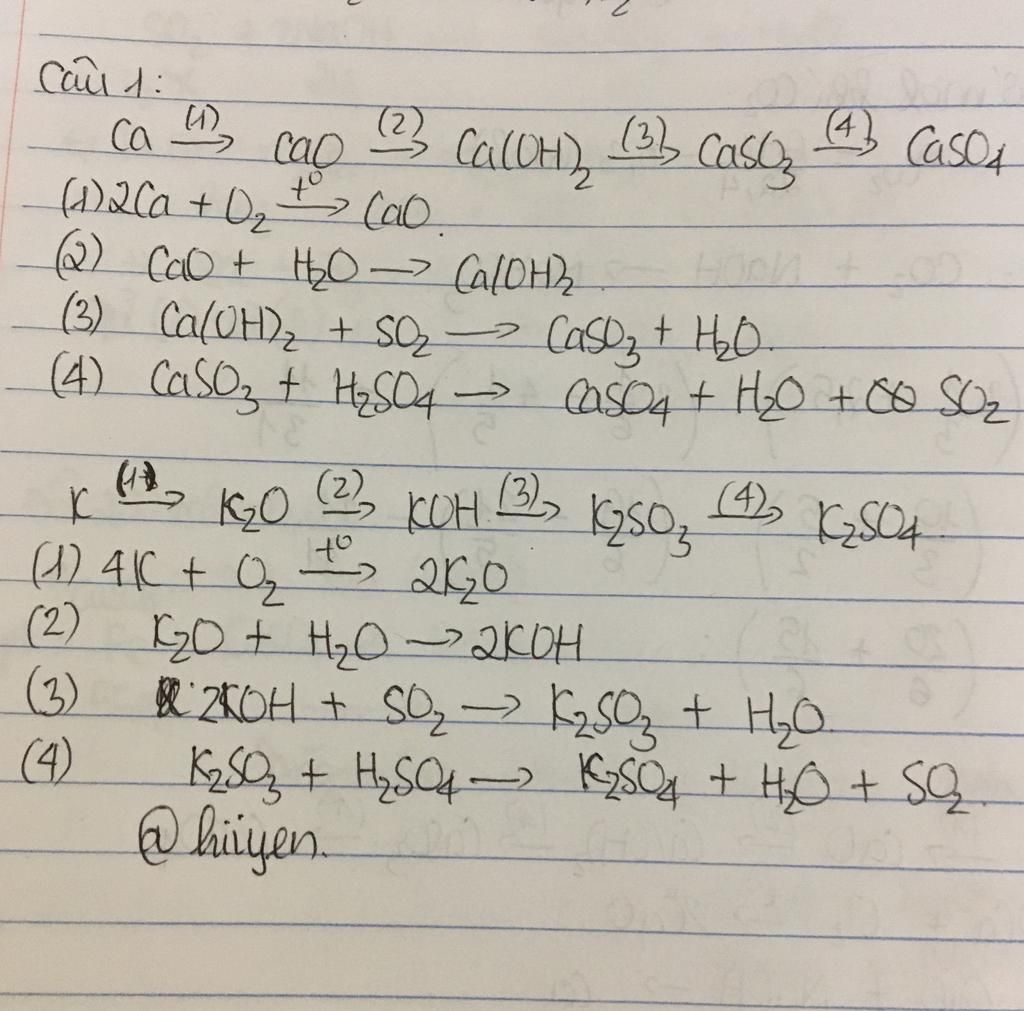 Câu 1:
Ca (1)→ CaO (2)→ Ca(OH)₂ (3)→ CaSO₃ (4)→ CaSO₄
(1) 2Ca + O₂ t°→ CaO.
(2) CaO + H₂O → Ca(OH)₂.
(3) Ca(OH)₂ + SO₂ → CaSO₃ + H₂O.
(4) CaSO₃ + H₂SO₄ → CaSO₄ + H₂O + SO₂
K (1)→ K₂O (2)→ KOH (3)→ K₂SO₃ (4)→ K₂SO₄.
(1) 4K + O₂ t°→ 2K₂O
(2) K₂O + H₂O → 2KOH
(3) 2KOH + SO₂ → K₂SO₃ + H₂O.
(4) K₂SO₃ + H₂SO₄ → K₂SO₄ + H₂O + SO₂.